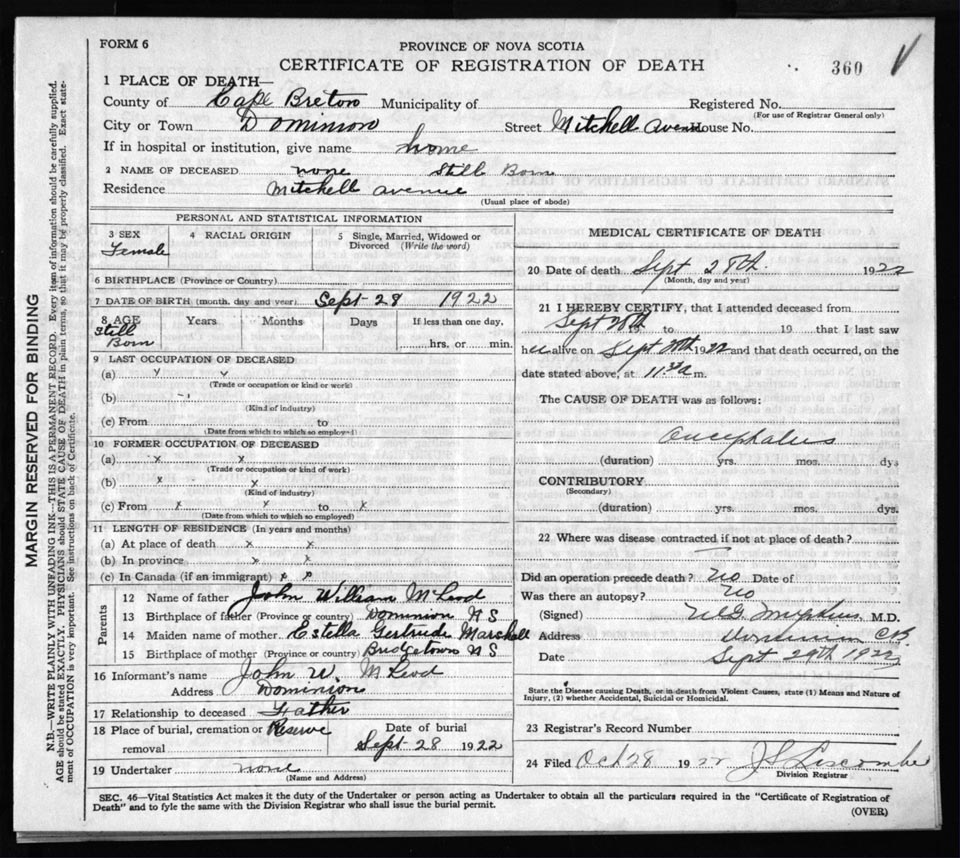 FORM 6
PROVINCE OF NOVA SCOTIA
CERTIFICATE OF REGISTRATION OF DEATH
360
1 PLACE OF DEATH—
County of Cape Breton Municipality of Registered No.
(For use of Registrar General only)
City or Town Dominion Street Mitchell Avenue House No.
If in hospital or institution, give name home
2 NAME OF DECEASED none Still Born
Residence Mitchell Avenue
(Usual place of abode)
PERSONAL AND STATISTICAL INFORMATION
3 SEX 4 RACIAL ORIGIN 5 Single, Married, Widowed or Divorced (Write the word)
Female
6 BIRTHPLACE (Province or Country)
7 DATE OF BIRTH (month, day and year) Sept 28 1922
8 AGE Years Months Days If less than one day,
Still Born hrs. or min.
9 LAST OCCUPATION OF DECEASED
(a)
(Trade or occupation or kind of work)
(b)
(Kind of industry)
(c) From to
(Date from which to which so employed)
10 FORMER OCCUPATION OF DECEASED
(a) x x
(Trade or occupation or kind of work)
(b) x x
(Kind of industry)
(c) From x x to x
(Date from which to which so employed)
11 LENGTH OF RESIDENCE (In years and months)
(a) At place of death x x
(b) In province x x
(c) In Canada (if an immigrant) x x
Parents
12 Name of father John William McLeod
13 Birthplace of father (Province or country) Dominion N S
14 Maiden name of mother Estella Gertrude Marshall
15 Birthplace of mother (Province or country) Bridgetown N S
16 Informant's name John W. McLeod
Address Dominion
17 Relationship to deceased Father
18 Place of burial, cremation or removal Reserve
Date of burial
Sept 28 1922
19 Undertaker none
(Name and Address)
MEDICAL CERTIFICATE OF DEATH
20 Date of death Sept 28th. 1922
(Month, day and year)
21 I HEREBY CERTIFY, that I attended deceased from
Sept 28th 19 to 19 that I last saw
her alive on Sept 1922 and that death occurred, on the
date stated above, at 11 30 a m.
The CAUSE OF DEATH was as follows:
(duration) yrs. mos. dys
CONTRIBUTORY
(Secondary)
(duration) yrs. mos. dys.
22 Where was disease contracted if not at place of death?
Did an operation precede death? No Date of
Was there an autopsy? No
(Signed) M.D.
Address Dominion CB
Date Sept 29th 1922
State the Disease causing Death, or in death from Violent Causes, state (1) Means and Nature of
Injury, (2) whether Accidental, Suicidal or Homicidal.
23 Registrar's Record Number
24 Filed Oct 28 1922 J S Liscombe
Division Registrar
SEC. 46—Vital Statistics Act makes it the duty of the Undertaker or person acting as Undertaker to obtain all the particulars required in the "Certificate of Registration of
Death" and to fyle the same with the Division Registrar who shall issue the burial permit.
(OVER)
MARGIN RESERVED FOR BINDING
N.B.—WRITE PLAINLY WITH UNFADING INK—THIS IS A PERMANENT RECORD. Every item of information should be carefully supplied.
AGE should be stated EXACTLY. PHYSICIANS should STATE CAUSE OF DEATH in plain terms, so that it may be properly classified. Exact state-
ment of OCCUPATION is very important. See instructions on back of Certificate.